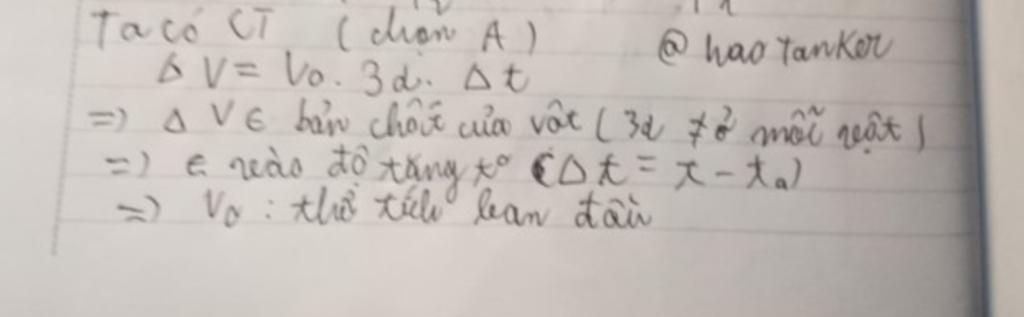 Ta có CT (chọn A) @haotanker
Δ V = V₀. 3α. Δt
=> Δ V ∈ bản chất của vật (3α ≠ ở mỗi vật)
=> ∈ vào độ tăng t° (Δt = t - t₀)
=> V₀ : thể tích ban đầu